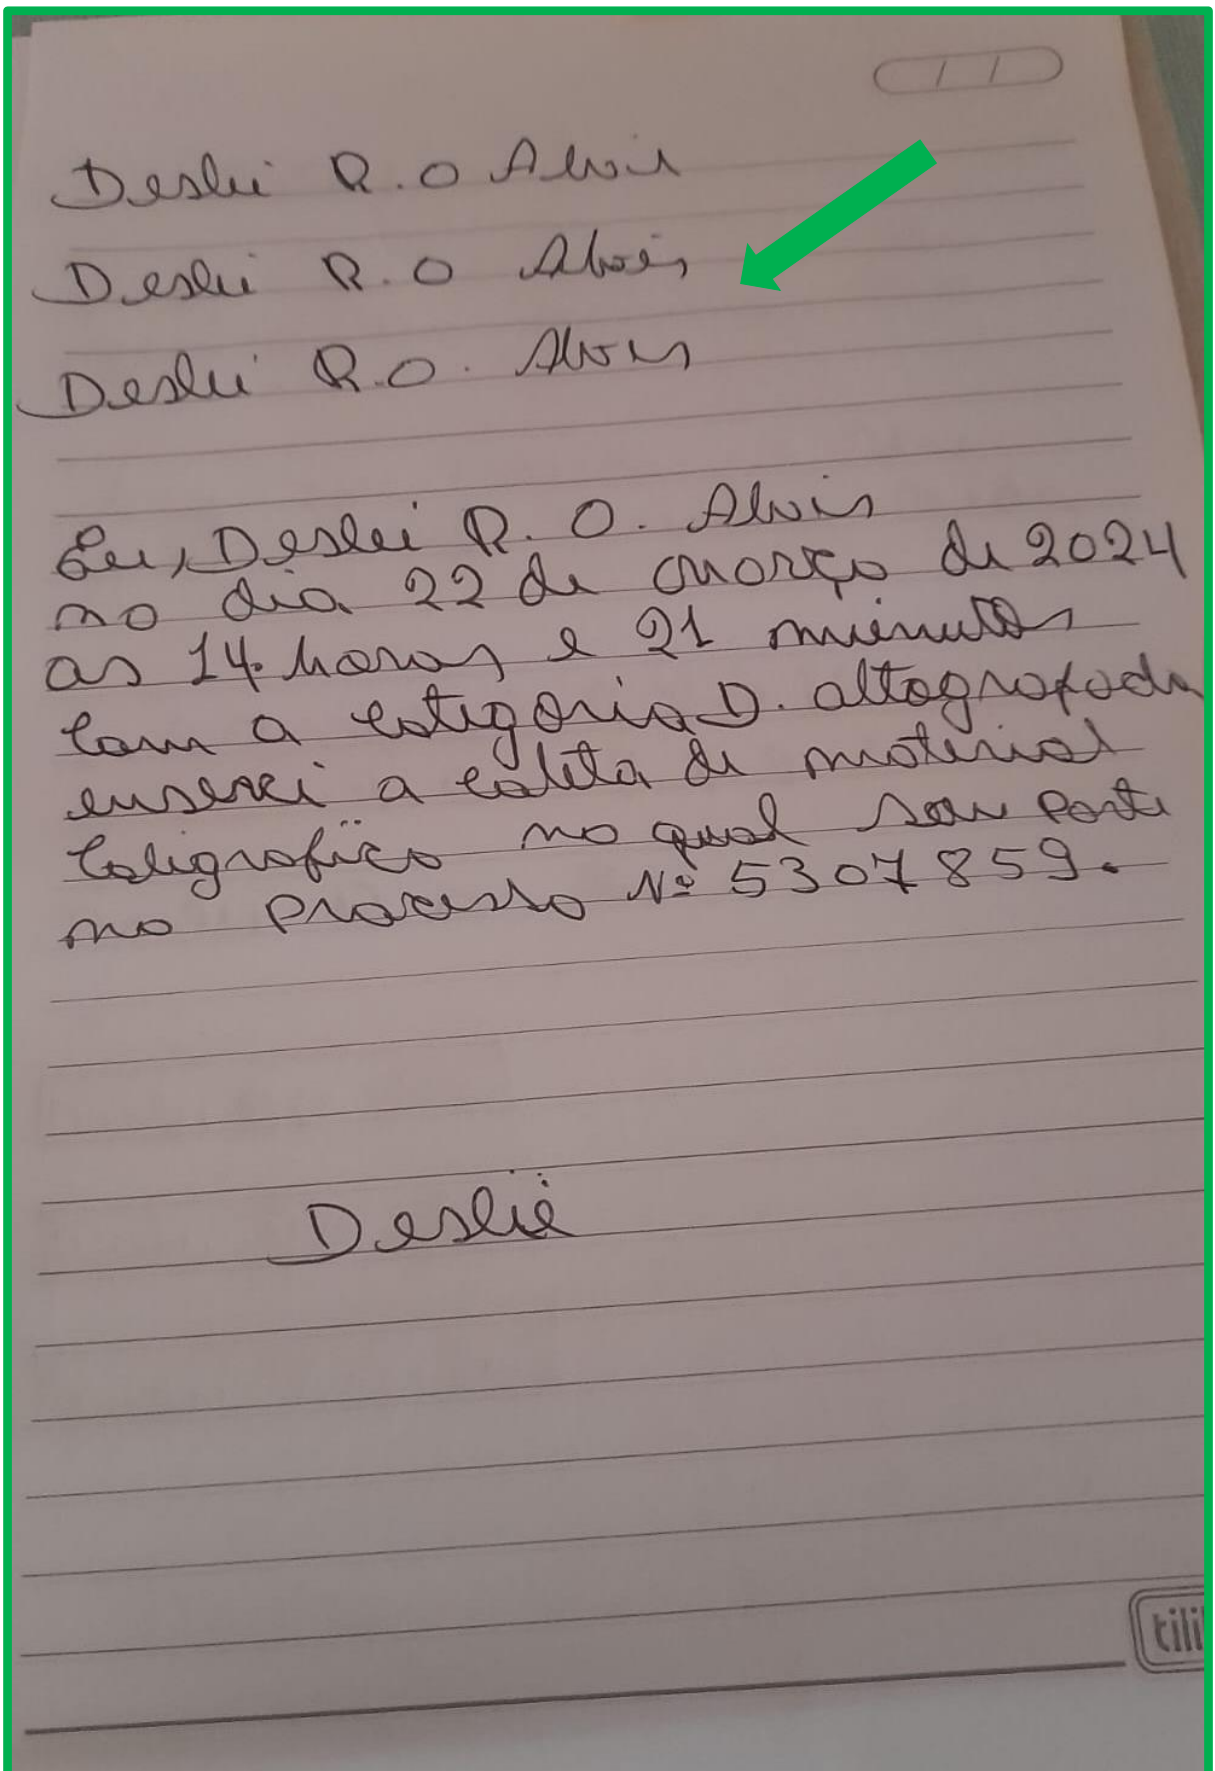 / /
Deslei R. O Alvis
Deslei R. O Alves
Deslei R. O. Alves
Eu, Deslei R. O. Alvis
no dia 22 de março de 2024
as 14 horas e 21 minutos
com a categoria D. altografada
a coleta de material
caligrafico no qual sou parte
no processo Nº 5307859.
Deslie
tili